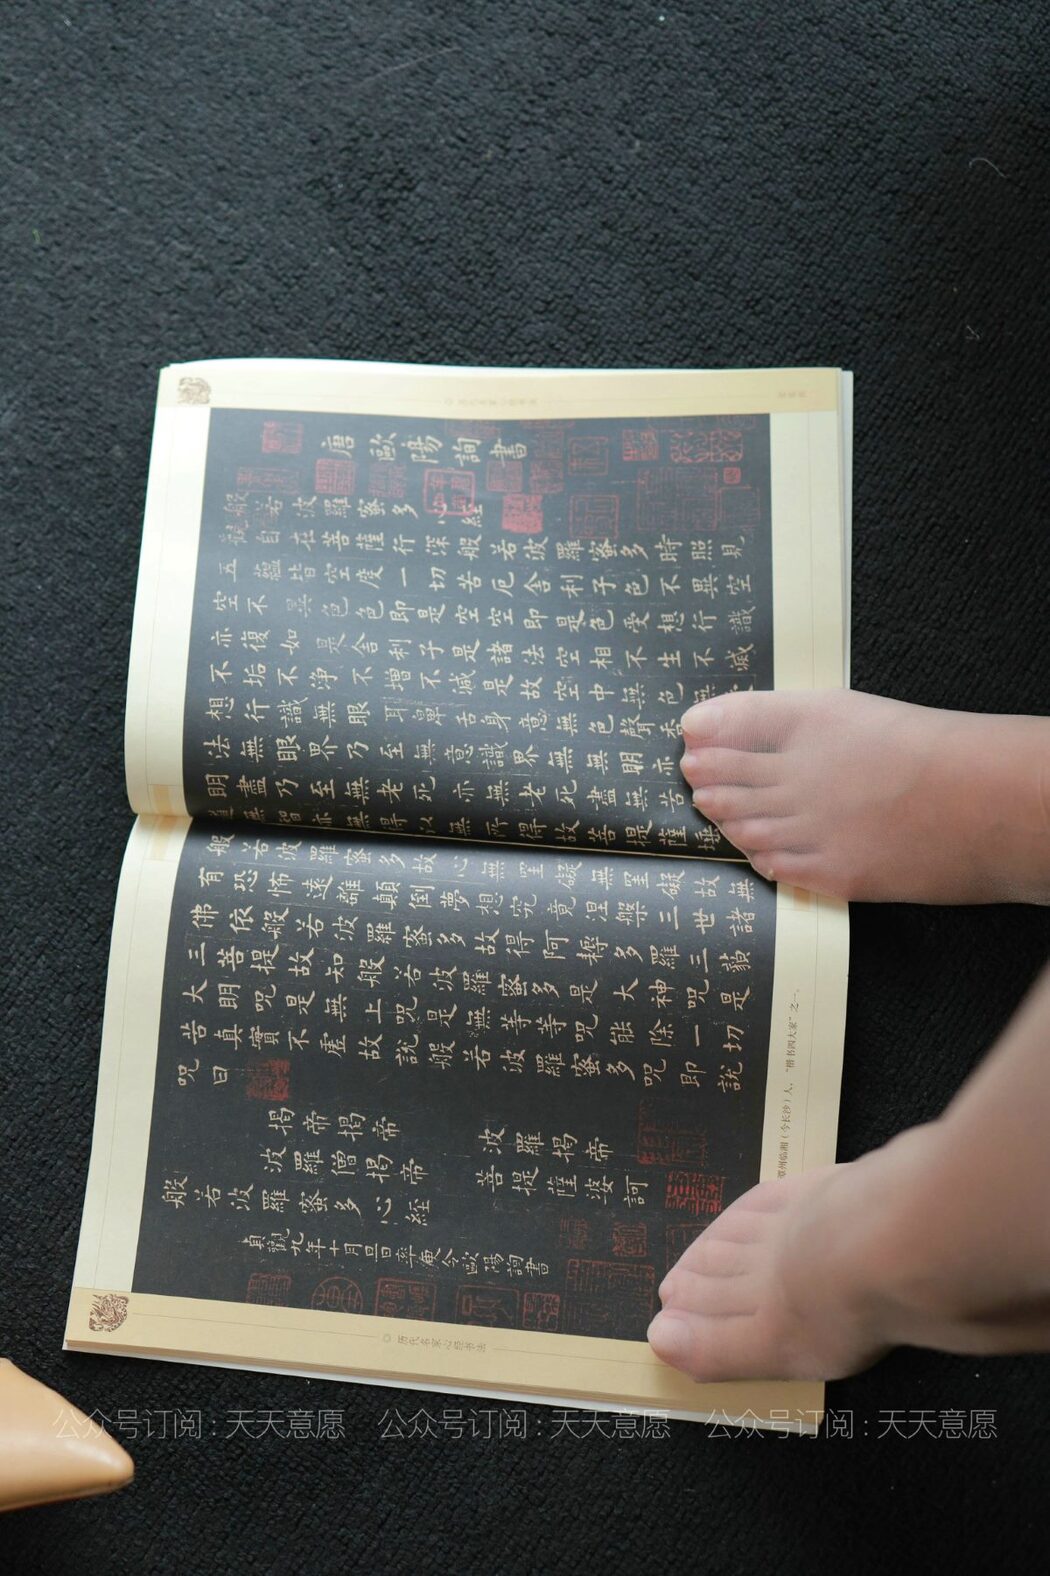 唐歐陽詢書
般若波羅蜜多心經
觀自在菩薩行深般若波羅蜜多時照見
五蘊皆空度一切苦厄舍利子色不異空
空不異色色即是空空即是色受想行識
亦復如是舍利子是諸法空相不生不滅
不垢不淨不增不減是故空中無色無
想行識無眼耳鼻舌身意無色聲香
法無眼界乃至無意識界無無明亦
明盡乃至無老死亦無老死盡無苦
無智亦無得以無所得故菩提薩埵
般若波羅蜜多故心無罣礙無罣礙故無
有恐怖遠離顛倒夢想究竟涅槃三世諸
佛依般若波羅蜜多故得阿耨多羅三藐
三菩提故知般若波羅蜜多是大神咒是
大明咒是無上咒是無等等咒能除一切
苦真實不虛故說般若波羅蜜多咒即說
咒曰
揭帝揭帝 波羅揭帝
波羅僧揭帝 菩提薩婆訶
般若波羅蜜多心經
貞觀九年十月旦日率更令歐陽詢書
历代名家心经书法
潭州临湘（今长沙）人，“楷书四大家”之一。
公众号订阅：天天意愿 公众号订阅：天天意愿 公众号订阅：天天意愿